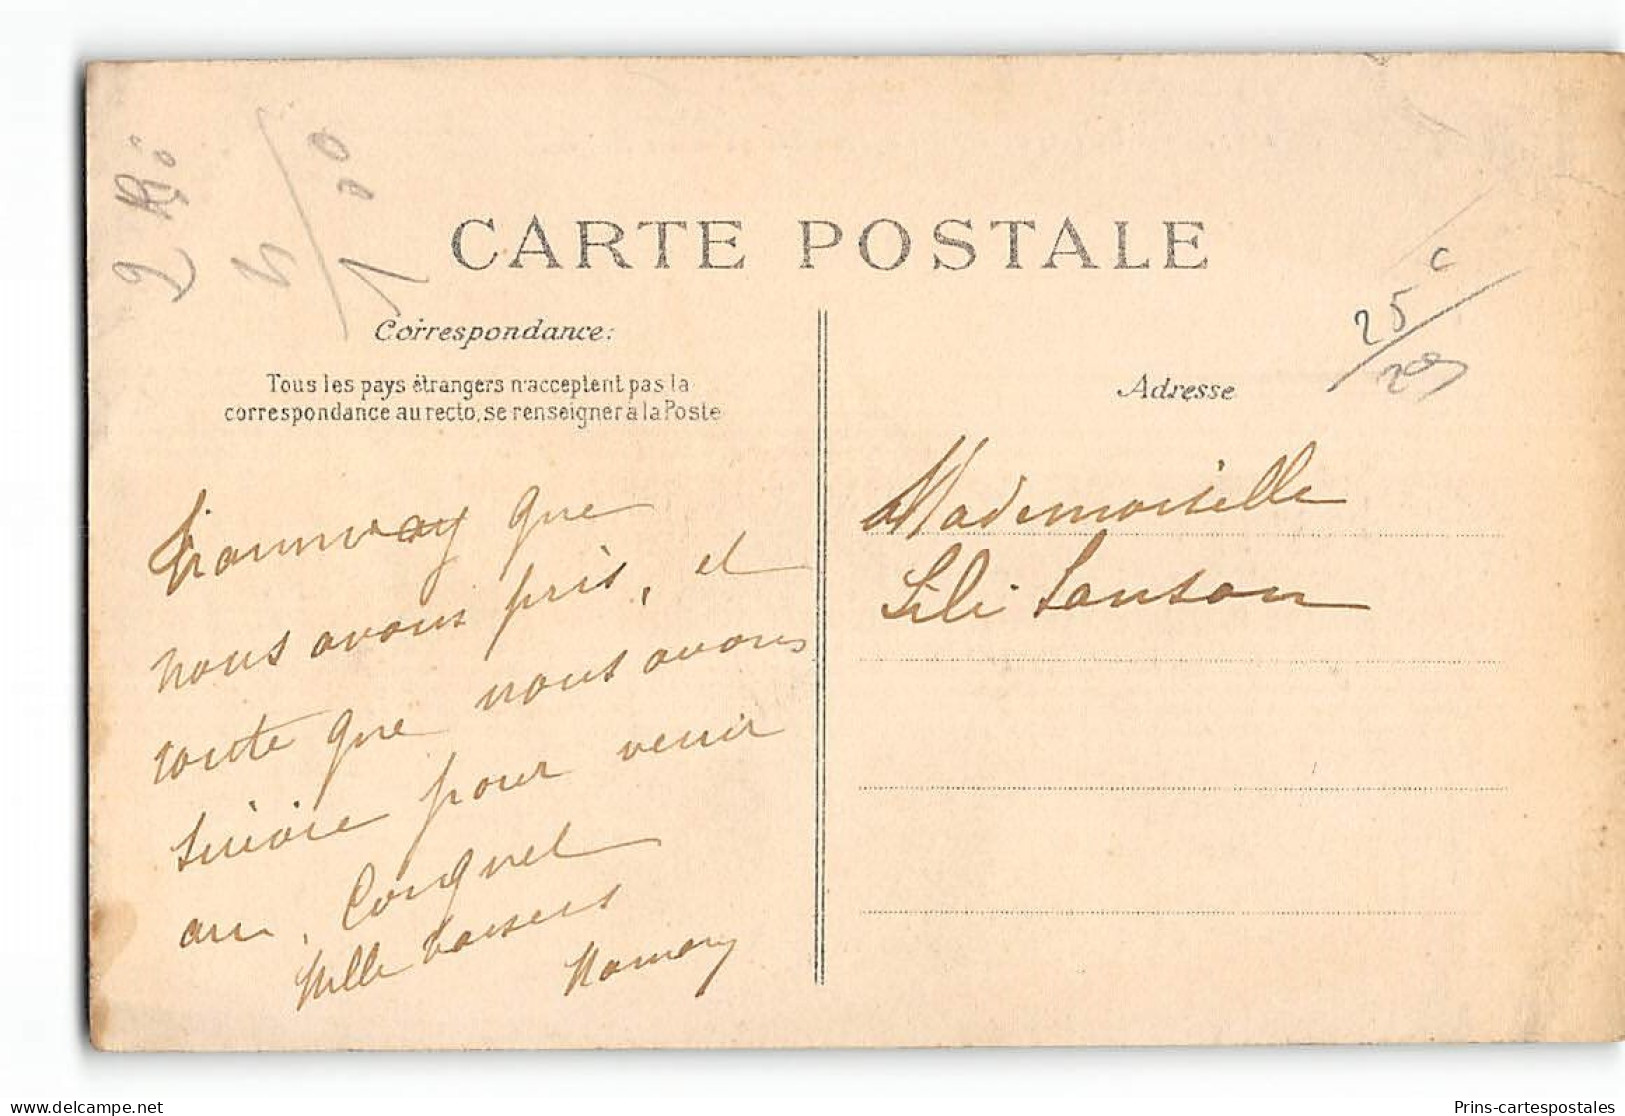 CARTE POSTALE
Correspondance:
Tous les pays étrangers n'acceptent pas la
correspondance au recto, se renseigner à la Poste
Adresse
25 c
Tramway que
nous avons pris, et
route que nous avons
suivie pour venir
au Conquet
Mille baisers
Mademoiselle
Lili Sanson
Prins-cartespostales